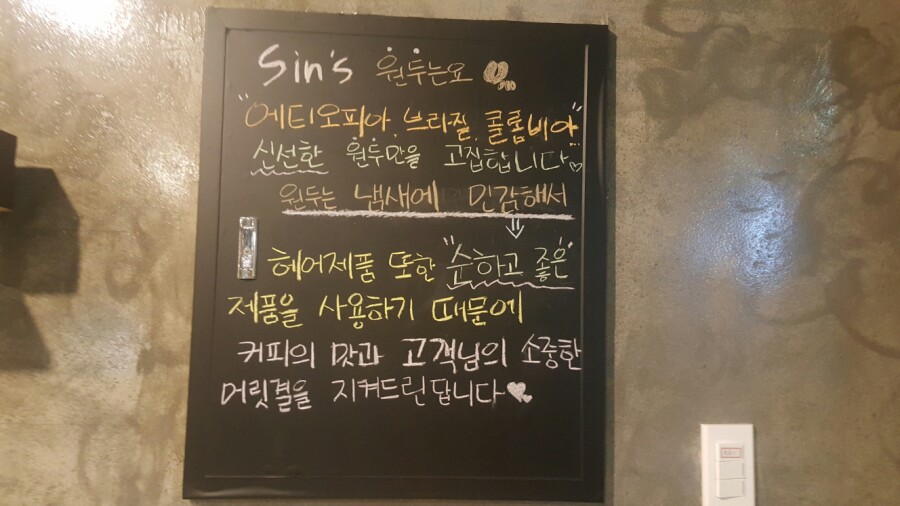 Sin's 원두는요
"에티오피아, 브라질, 콜롬비아"...
신선한 원두만을 고집합니다♡
원두는 냄새에 민감해서
⇓
헤어제품 또한 "순하고 좋은"
제품을 사용하기 때문에
커피의 맛과 고객님의 소중한
머릿결을 지켜드린답니다♥